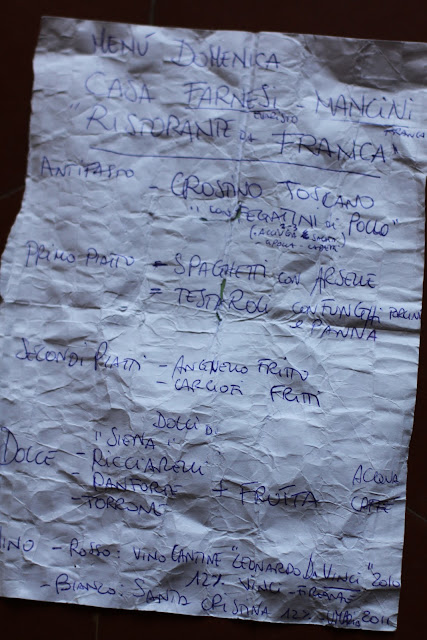 MENÚ DOMENICA
CASA FARNESI - MANCINI
FRANCA
"RISTORANTE di FRANCA"
ANTIPASTO - CROSTINO TOSCANO
"CON FEGATINI di POLLO"
PRIMO PIATTO - SPAGHETTI CON ARSELLE
= TESTAROLI CON FUNGHI PORCINI
e PANNA
SECONDI PIATTI - AGNELLO FRITTO
- CARCIOFI FRITTI
DOLCI DI
"SIENA"
DOLCE - RICCIARELLI
- PANFORTE + FRUTTA ACQUA
- TORRONE CAFFE
VINO - ROSSO: VINO CANTINE "LEONARDO DA VINCI" 2010
12% VINCI - FIRENZE
- BIANCO: SANTA CRISTINA 12% 2011